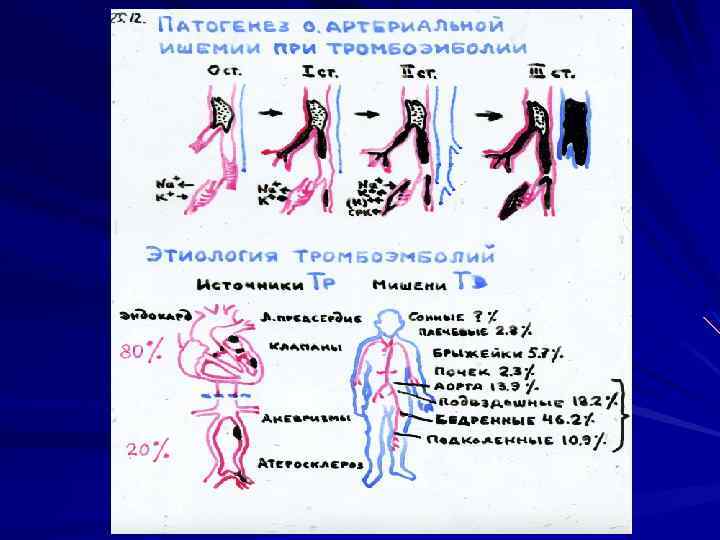 25.12.
ПАТОГЕНЕЗ О. АРТЕРИАЛЬНОЙ
ИШЕМИИ ПРИ ТРОМБОЭМБОЛИИ
0 ст. I ст. II ст. III ст.
Na⁺ Na⁺ Na⁺
K⁺ K⁺ K⁺
(K)⁺⁺
СРК⁺
ЭТИОЛОГИЯ ТРОМБОЭМБОЛИЙ
ИСТОЧНИКИ ТР МИШЕНИ ТЭ
ЭНДОКАРД Л. ПРЕДСЕРДИЕ СОННЫЕ ? %
ПЛЕЧЕВЫЕ 2.8%
80% КЛАПАНЫ БРЫЖЕЙКИ 5.7%
ПОЧЕК 2.3%
АОРТА 13.9%
ПОДВЗДОШНЫЕ 18.2%
АНЕВРИЗМЫ БЕДРЕННЫЕ 46.2%
20% ПОДКОЛЕННЫЕ 10.9%
АТЕРОСКЛЕРОЗ